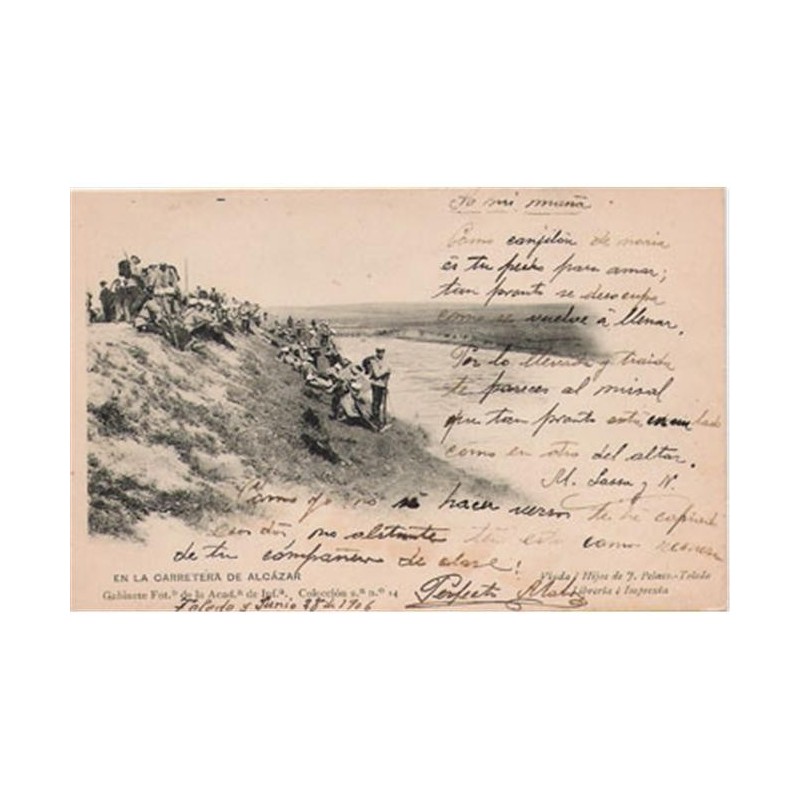 mi
Como canjilón de noria
es tu pecho para amar;
tan pronto se desocupa
como se vuelve á llenar.
Por lo llevada y traida
te pareces al misal
que tan pronto está en un lado
como en otro del altar.
M. y N.
Como yo no sé hacer versos te he copiado
esos dos no obstante ten esto como recuerdo
de tu compañero de clase!
EN LA CARRETERA DE ALCÁZAR
Viuda é Hijos de J. Peláez.-Toledo
Gabinete Fot.º de la Acad.ª de Inf.ª. Colección 2.ª n.º 14
Perfecto
Librería é Imprenta
Toledo y Junio 28 de 1906